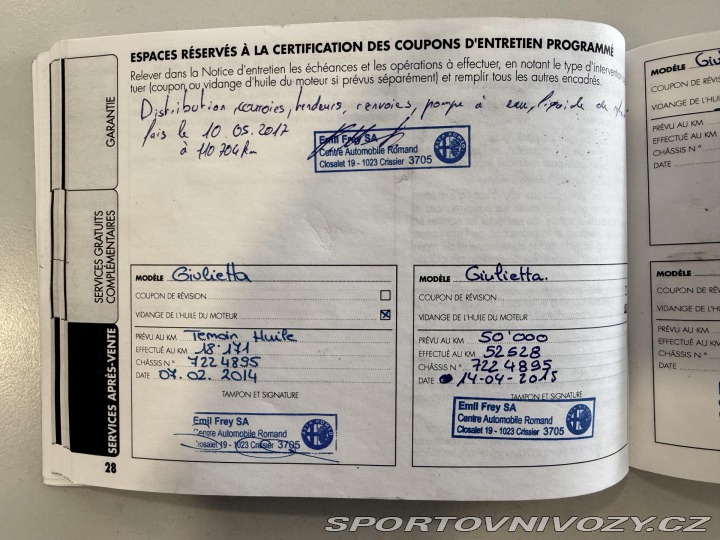 ESPACES RÉSERVÉS À LA CERTIFICATION DES COUPONS D'ENTRETIEN PROGRAMMÉ
Relever dans la Notice d'entretien les échéances et les opérations à effectuer, en notant le type d'intervention
tuer (coupon ou vidange d'huile du moteur si prévus séparément) et remplir tous les autres encadrés.
Distribution courroies, tendeurs, renvoies, pompe à eau, liquide de
fais le 10.05.2017
à 110 704 km
Emil Frey SA
Centre Automobile Romand
Closalet 19 - 1023 Crissier 3705
GARANTIE
SERVICES GRATUITS
COMPLÉMENTAIRES
SERVICES APRÈS-VENTE
28
MODÈLE Giulietta
COUPON DE RÉVISION
VIDANGE DE L'HUILE DU MOTEUR
PRÉVU AU KM Temoin Huile
EFFECTUÉ AU KM 18'171
CHÂSSIS N° 7224895
DATE 07.02.2014
TAMPON ET SIGNATURE
Emil Frey SA
Centre Automobile Romand
Closalet 19 - 1023 Crissier 3705
MODÈLE Giulietta.
COUPON DE RÉVISION
VIDANGE DE L'HUILE DU MOTEUR
PRÉVU AU KM 50'000
EFFECTUÉ AU KM 52528
CHÂSSIS N° 7224895
DATE 14-04-2015
TAMPON ET SIGNATURE
Emil Frey SA
Centre Automobile Romand
Closalet 19 - 1023 Crissier 3705
MODÈLE Giu
COUPON DE RÉV
VIDANGE DE L'HU
PRÉVU AU KM
EFFECTUÉ AU KM
CHÂSSIS N°
DATE
MODÈLE
COUPON DE RÉV
VIDANGE DE L'HU
PRÉVU AU KM
EFFECTUÉ AU KM
CHÂSSIS N°
DATE
SPORTOVNIVOZY.CZ